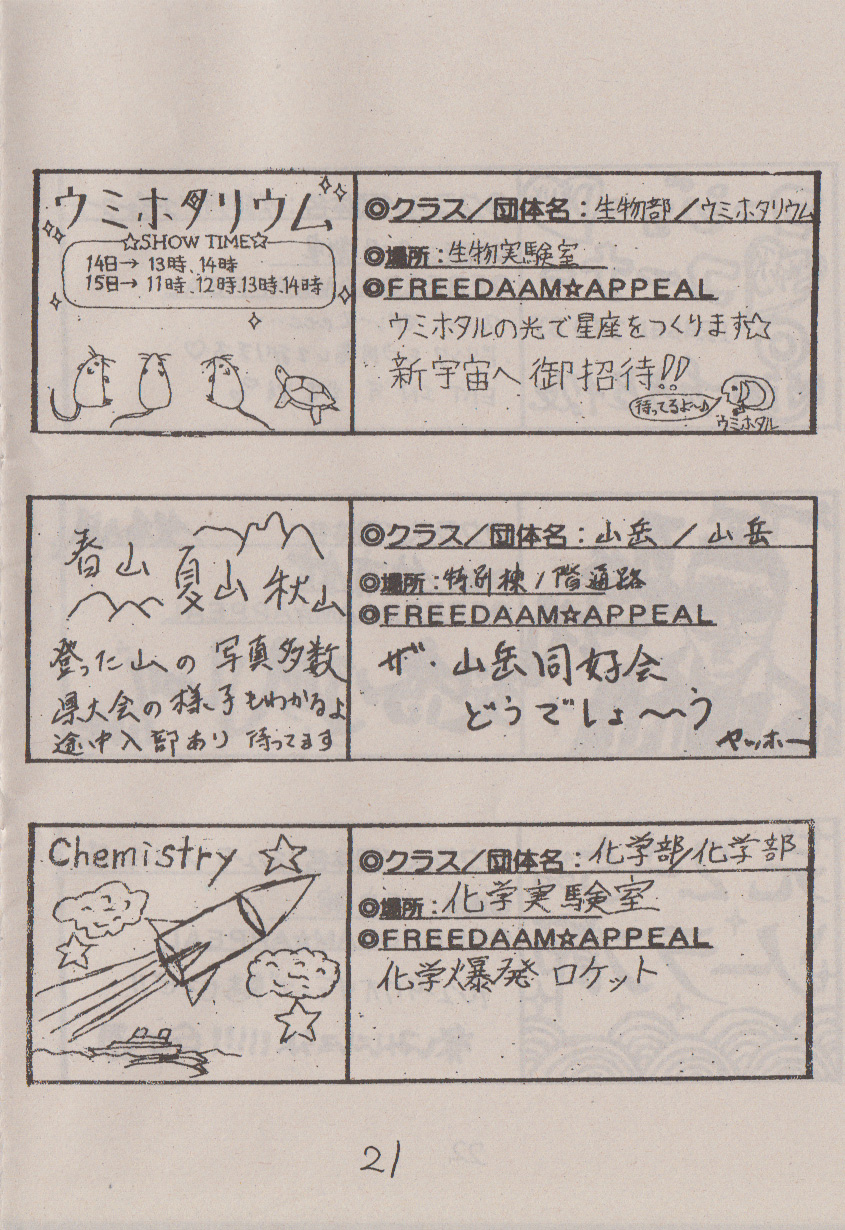 ウミホタリウム
☆SHOW TIME☆
14日→ 13時、14時
15日→ 11時、12時、13時、14時
◎クラス/団体名:生物部/ウミホタリウム
◎場所:生物実験室
◎FREEDAAM☆APPEAL
ウミホタルの光で星座をつくります☆
新宇宙へ御招待!!
待ってるよ〜♪
ウミホタル
春山 夏山 秋山
登った山への写真多数
県大会の様子もわかるよ
途中入部あり 待ってます
◎クラス/団体名:山岳/山岳
◎場所:特別棟1階通路
◎FREEDAAM☆APPEAL
ザ・山岳同好会
どうでしょ〜う
ヤッホー
Chemistry ☆
◎クラス/団体名:化学部/化学部
◎場所:化学実験室
◎FREEDAAM☆APPEAL
化学爆発ロケット
21